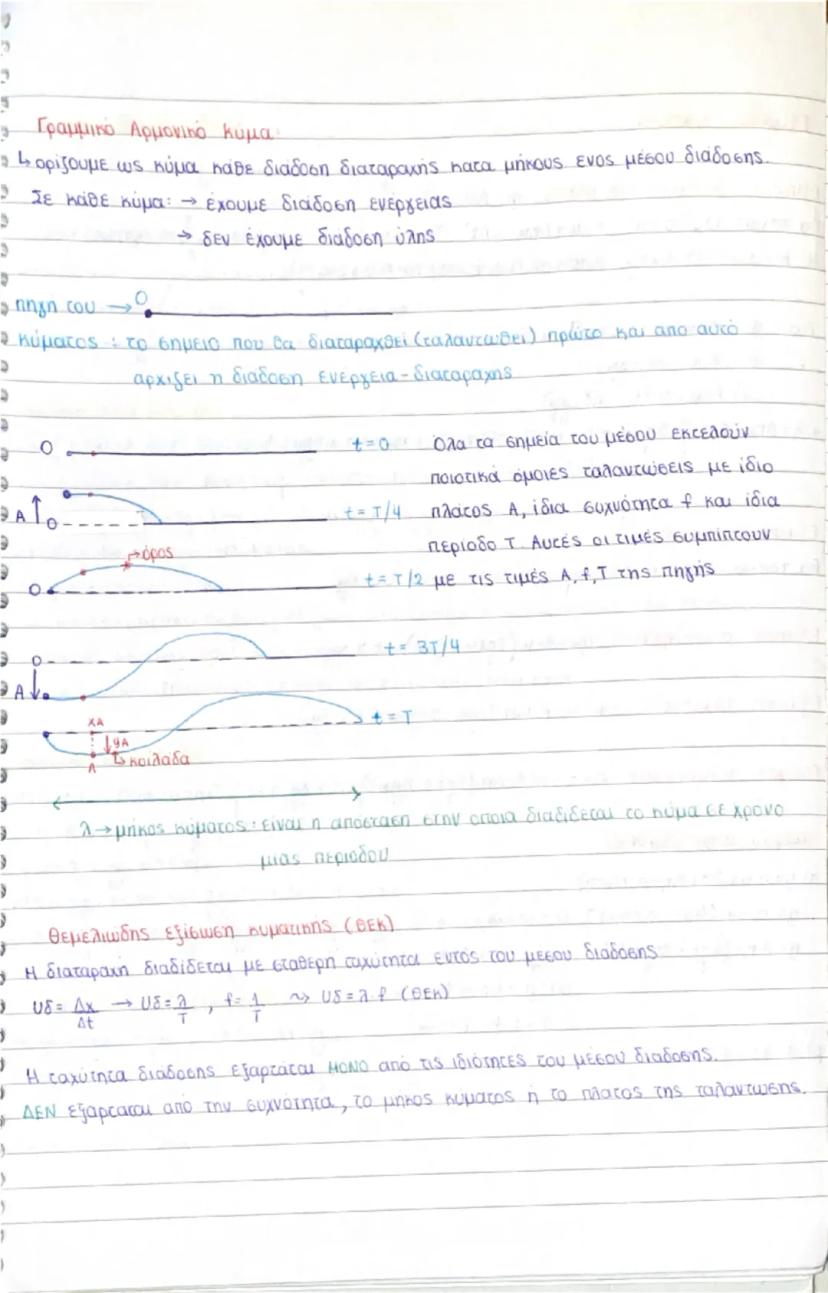 Γραμμικό Αρμονικό κύμα:
↳ ορίζουμε ως κύμα κάθε διάδοση διαταραχής κατα μήκους ενος μέσου διάδοσης.
Σε κάθε κύμα: → έχουμε διάδοση ενέργειας
→ δεν έχουμε διάδοση ύλης
πηγη του → O
κύματος : το σημειο που θα διαταραχθεί (ταλαντωθει) πρώτο και απο αυτό
αρχιζει η διάδοση ενέργεια - διαταραχης
O t=0 Όλα τα σημεία του μέσου εκτελούν
ποιοτικά όμοιες ταλαντώσεις με ίδιο
A ↑ O t = T/4 πλάτος A, ίδια συχνότητα f και ίδια
περίοδο T. Αυτές οι τιμές συμπίπτουν
→ όρος
O t = T/2 με τις τιμές A, f, T της πηγής
O t = 3T/4
A ↓
xA t = T
↓ yA
A ↳ κοιλάδα
λ → μήκος κύματος : είναι η απόσταση στην οποια διαδίδεται το κύμα σε χρονο
μιας περιόδου
Θεμελιώδης εξίσωση κυματικής (ΘΕΚ)
Η διαταραχη διαδίδεται με σταθερη ταχύτητα εντός του μεσου διαδοσης
υδ = Δx/Δt → υδ = λ/T , f = 1/T ⤳ υδ = λ·f (ΘΕΚ)
Η ταχύτητα διάδοσης εξαρτάται ΜΟΝΟ από τις ιδιότητες του μέσου διαδοσης.
ΔΕΝ εξαρταται από την συχνότητα, το μηκος κυματος ή το πλατος της ταλαντωσης.